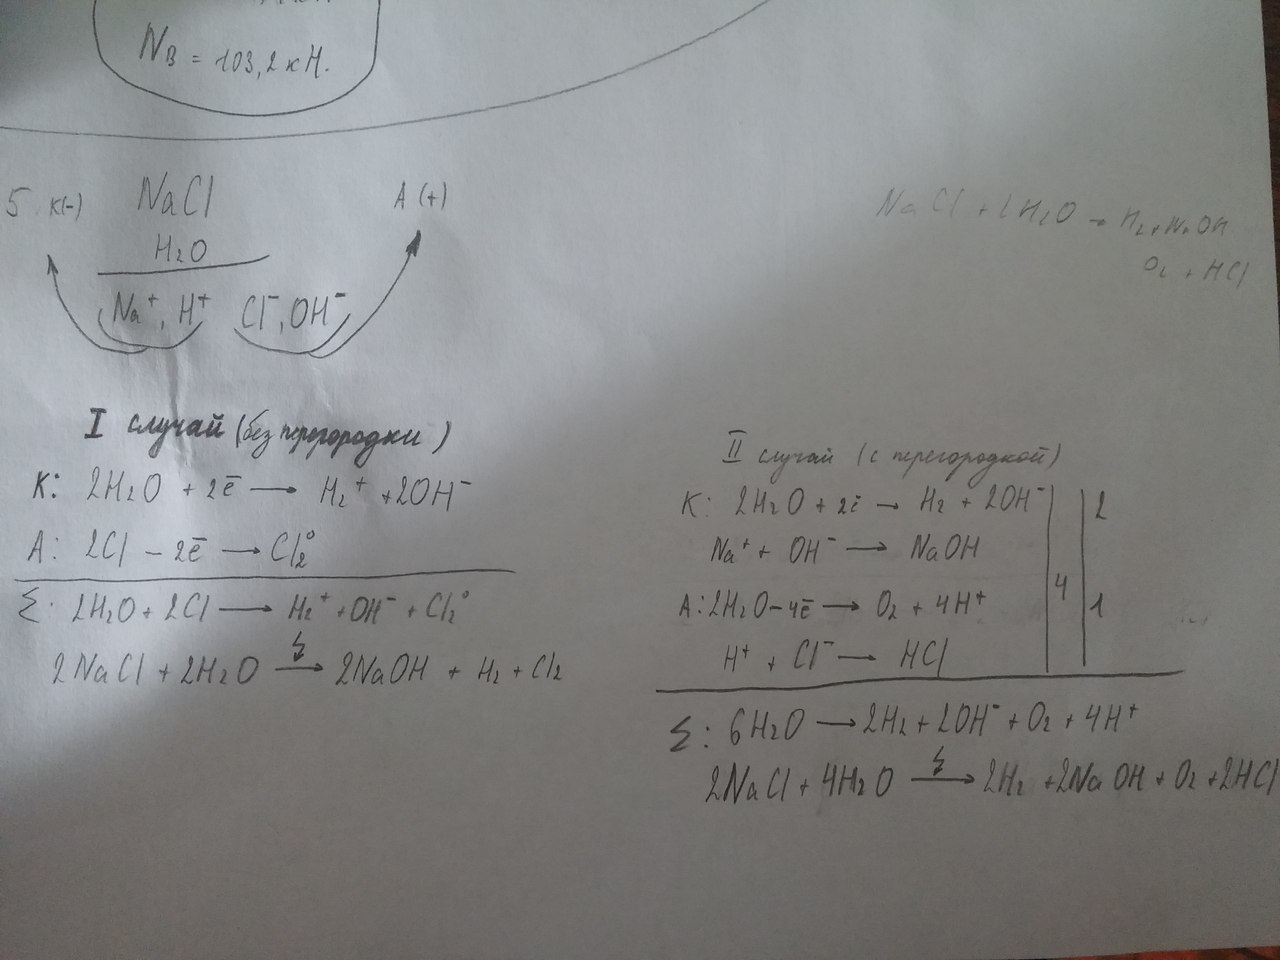 N_B = 103,2 кН.
5 К(-) NaCl А (+)
H₂O
Na⁺, H⁺ Cl⁻, OH⁻
NaCl + 2H₂O → H₂ + NaOH
O₂ + HCl
I случай (без перегородки)
К: 2H₂O + 2ē → H₂⁺ + 2OH⁻
А: 2Cl - 2ē → Cl₂⁰
Σ: 2H₂O + 2Cl → H₂⁺ + OH⁻ + Cl₂⁰
2NaCl + 2H₂O → 2NaOH + H₂ + Cl₂
II случай (с перегородкой)
К: 2H₂O + 2ē → H₂ + 2OH⁻ | | 2
Na⁺ + OH⁻ → NaOH
4
А: 2H₂O - 4ē → O₂ + 4H⁺ | | 1
H⁺ + Cl⁻ → HCl
Σ: 6H₂O → 2H₂ + 2OH⁻ + O₂ + 4H⁺
2NaCl + 4H₂O → 2H₂ + 2NaOH + O₂ + 2HCl